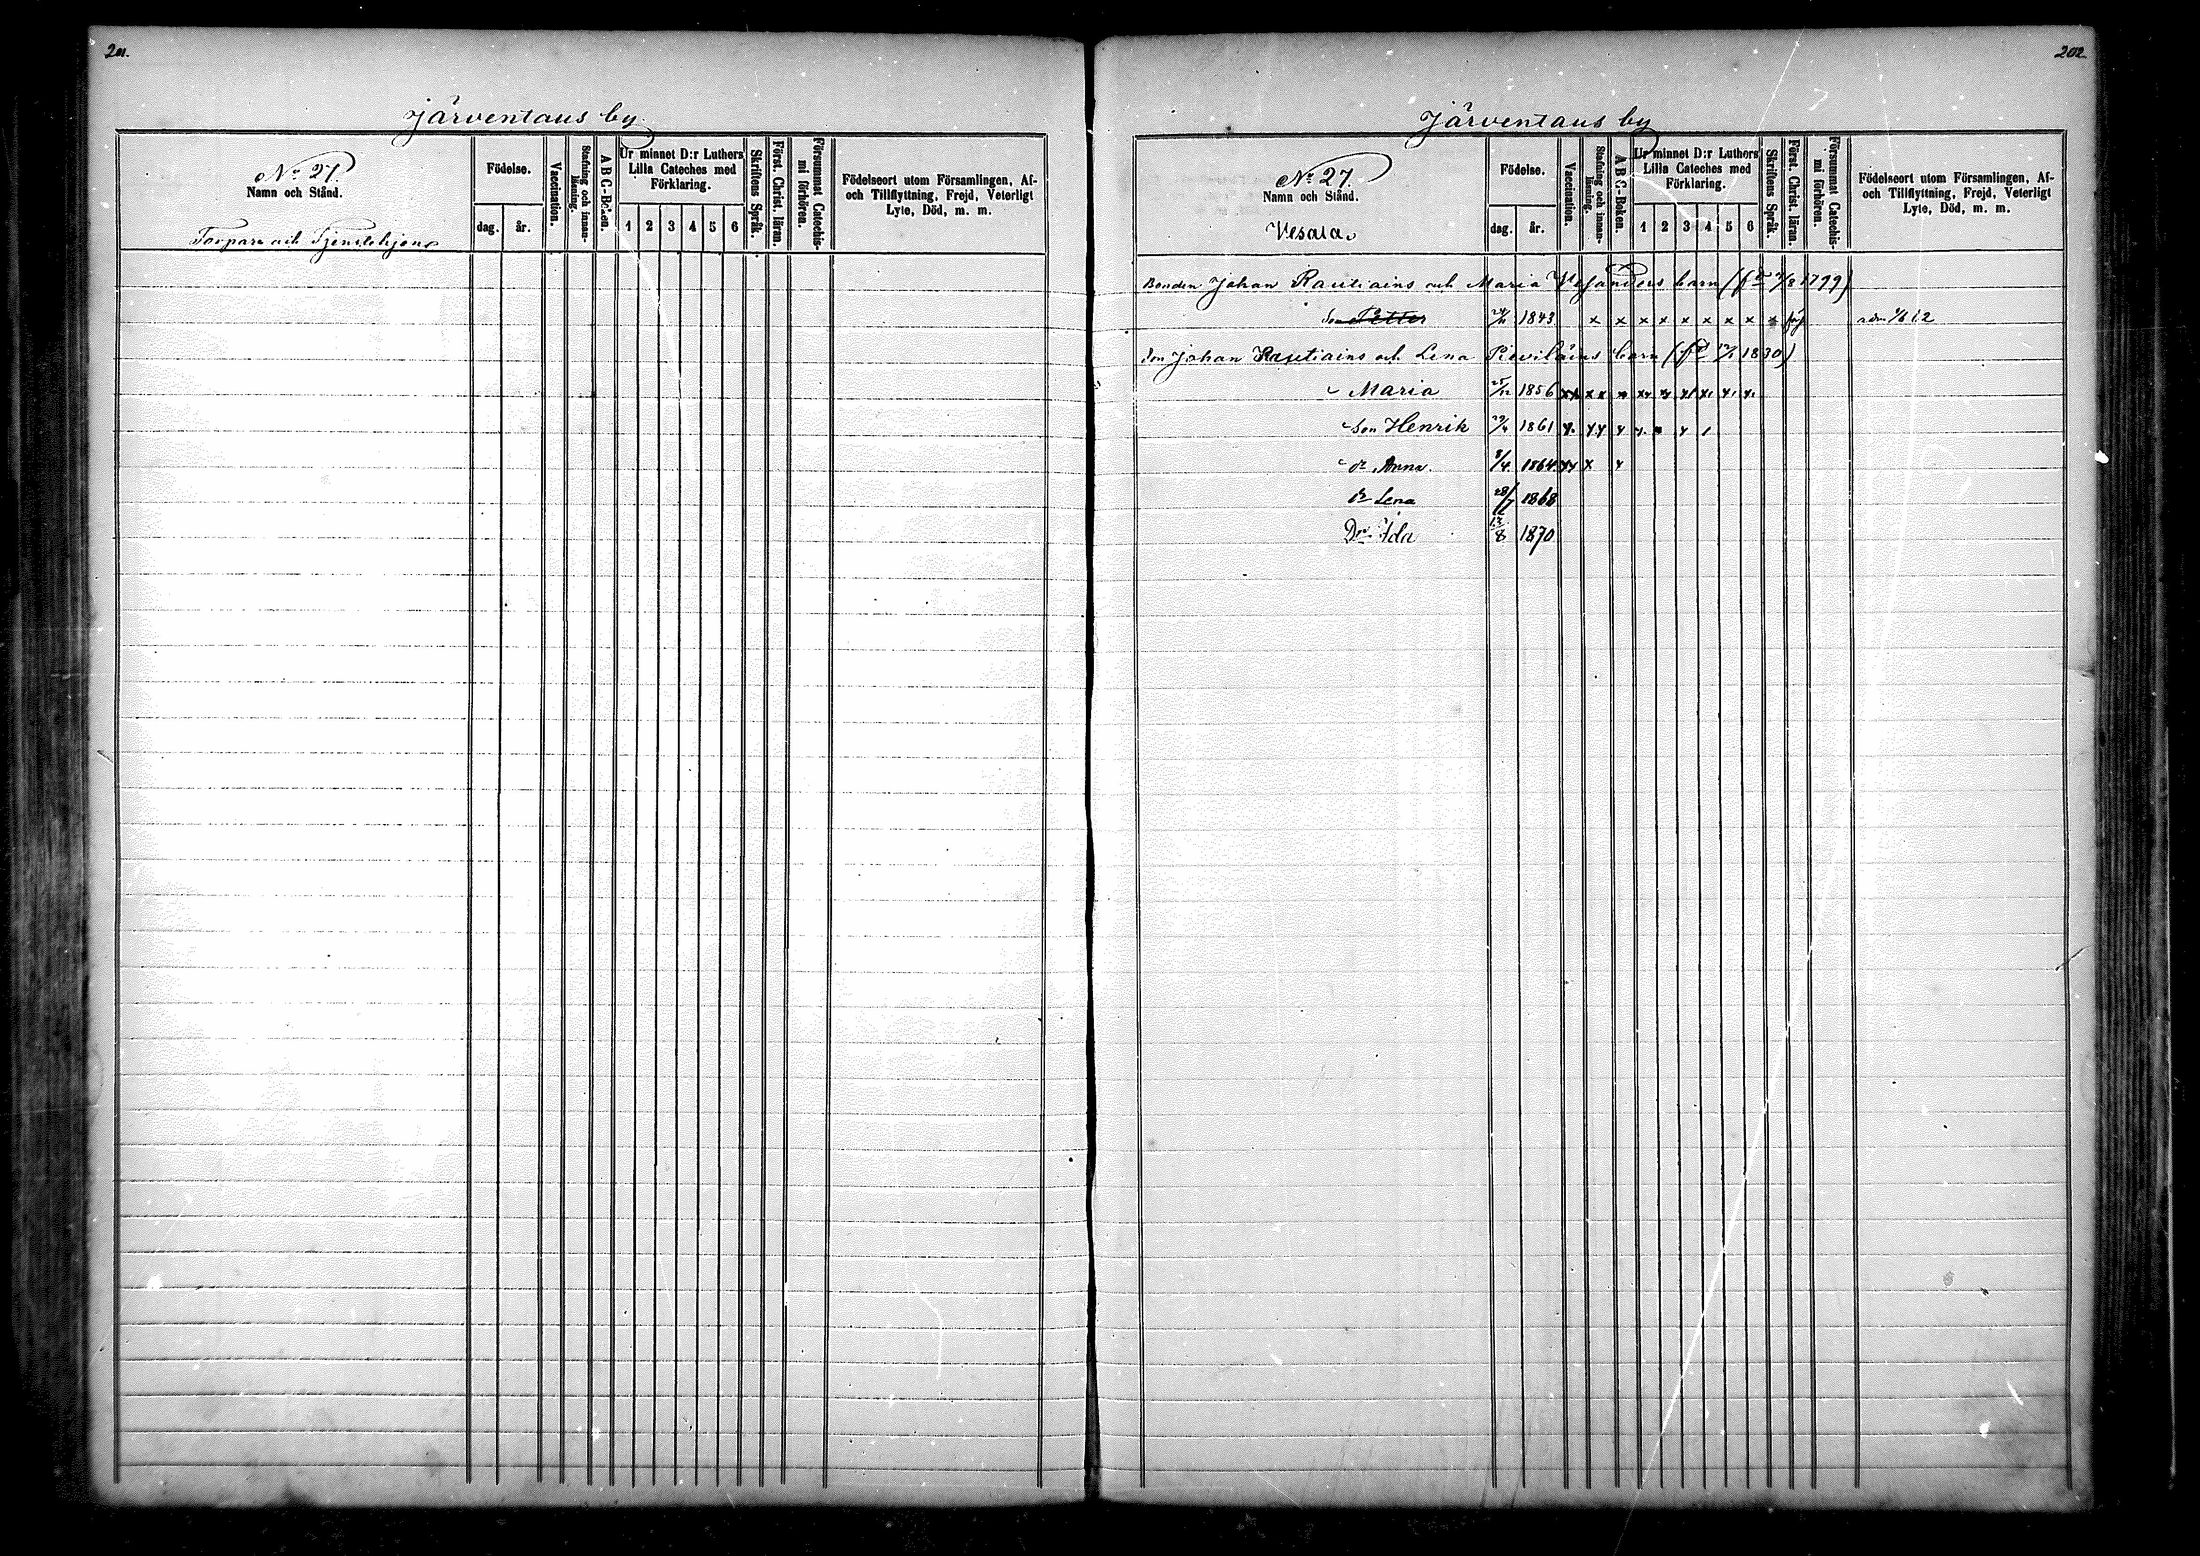 201.
Järventaus by
No 27.
Namn och Stånd.
Torpare och Tjenstehjon
Födelse.
dag. år.
Vaccination.
Stafning och innan-läsning.
ABC-Boken.
Ur minnet D:r Luthers
Lilla Cateches med
Förklaring.
1 2 3 4 5 6
Skriftens Språk.
Först. Christ. läran.
Försummat Catechis-mi förhören.
Födelseort utom Församlingen, Af-
och Tillflyttning, Frejd, Veterligt
Lyte, Död, m. m.
202
Järventaus by
No 27.
Namn och Stånd.
Vesala
Födelse.
dag. år.
Vaccination.
Stafning och innan-läsning.
ABC-Boken.
Ur minnet D:r Luthers
Lilla Cateches med
Förklaring.
1 2 3 4 5 6
Skriftens Språk.
Först. Christ. läran.
Försummat Catechis-mi förhören.
Födelseort utom Församlingen, Af-
och Tillflyttning, Frejd, Veterligt
Lyte, Död, m. m.
Bonden Johan Rautiains och Maria Vesanders barn 1799)
Son Petter 1843 x x x x x x x x x
Son Johan Rautiains och Lena barn 1830)
Maria 1856
Son Henrik 1861
Dr Anna 8/4 1864
Dr Lena 28/7 1868
Dr Ida 12/8 1870